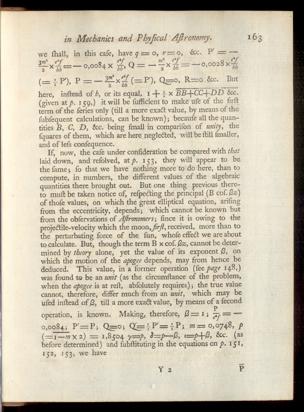 in Mechanics and Physical Astronomy. 163
we shall, in this case, have q = 0, r = 0, &c. P′ = —
3m²/2 × c²f/ss = — 0,0084 × c²f/ss, Q = — m²/2 × c²f/ss = — 0,0028 × c²f/ss
(= ⅓ P′), P = — 3m²/2 × c²f/ss (= P′), Q=0, R=0 &c. But
here, instead of b, or its equal, 1 + ½ × BB+CC+DD &c.
(given at p. 159.) it will be sufficient to make use of the first
term of the series only (till a more exact value, by means of the
subsequent calculations, can be known); because all the quan-
tities B, C, D, &c. being small in comparison of unity, the
squares of them, which are here neglected, will be still smaller,
and of less consequence.
If, now, the case under consideration be compared with that
laid down, and resolved, at p. 153, they will appear to be
the same; so that we have nothing more to do here, than to
compute, in numbers, the different values of the algebraic
quantities there brought out. But one thing previous there-
to must be taken notice of, respecting the principal (B cos. ßz)
of those values, on which the great elliptical equation, arising
from the eccentricity, depends; which cannot be known but
from the observations of Astronomers; since it is owing to the
projectile-velocity which the moon, first, received, more than to
the perturbating force of the sun, whose effect we are about
to calculate. But, though the term B x cos. ßz, cannot be deter-
mined by theory alone, yet the value of its exponent ß, on
which the motion of the apogee depends, may from hence be
deduced. This value, in a former operation (see page 148.)
was found to be an unit (as the circumstance of the problem,
when the apogee is at rest, absolutely requires); the true value
cannot, therefore, differ much from an unit, which may be
used instead of ß, till a more exact value, by means of a second
operation, is known. Making, therefore, ß = 1; P/f =—
0,0084; P′=P; Q=0; Q′=⅓ P′=⅓ P; m = 0,0748, p
(=1—m × 2) = 1,8504 γ=p, δ=p—ß, ε=p+ß, &c. (as
before determined) and substituting in the equations on p. 151,
152, 153, we have
Y 2
P